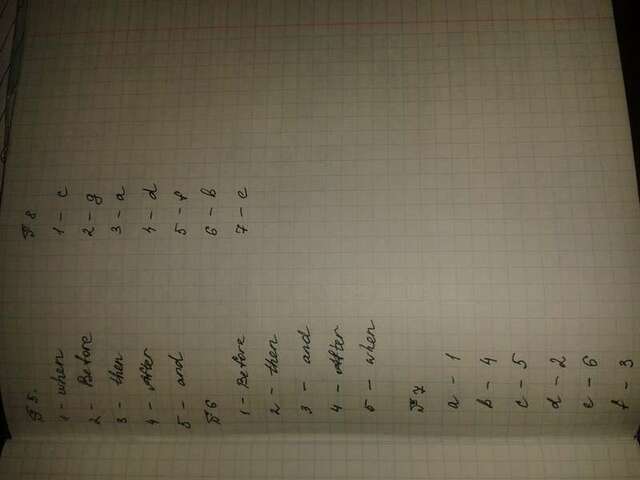 T 5.
1 - when
2 - Before
3 - then
4 - After
5 - and
T 6
1 - Before
2 - then
3 - and
4 - After
5 - when
T 7
a - 1
b - 4
c - 5
d - 2
e - 6
f - 3
T 8
1 - c
2 - g
3 - a
4 - d
5 - f
6 - b
7 - e